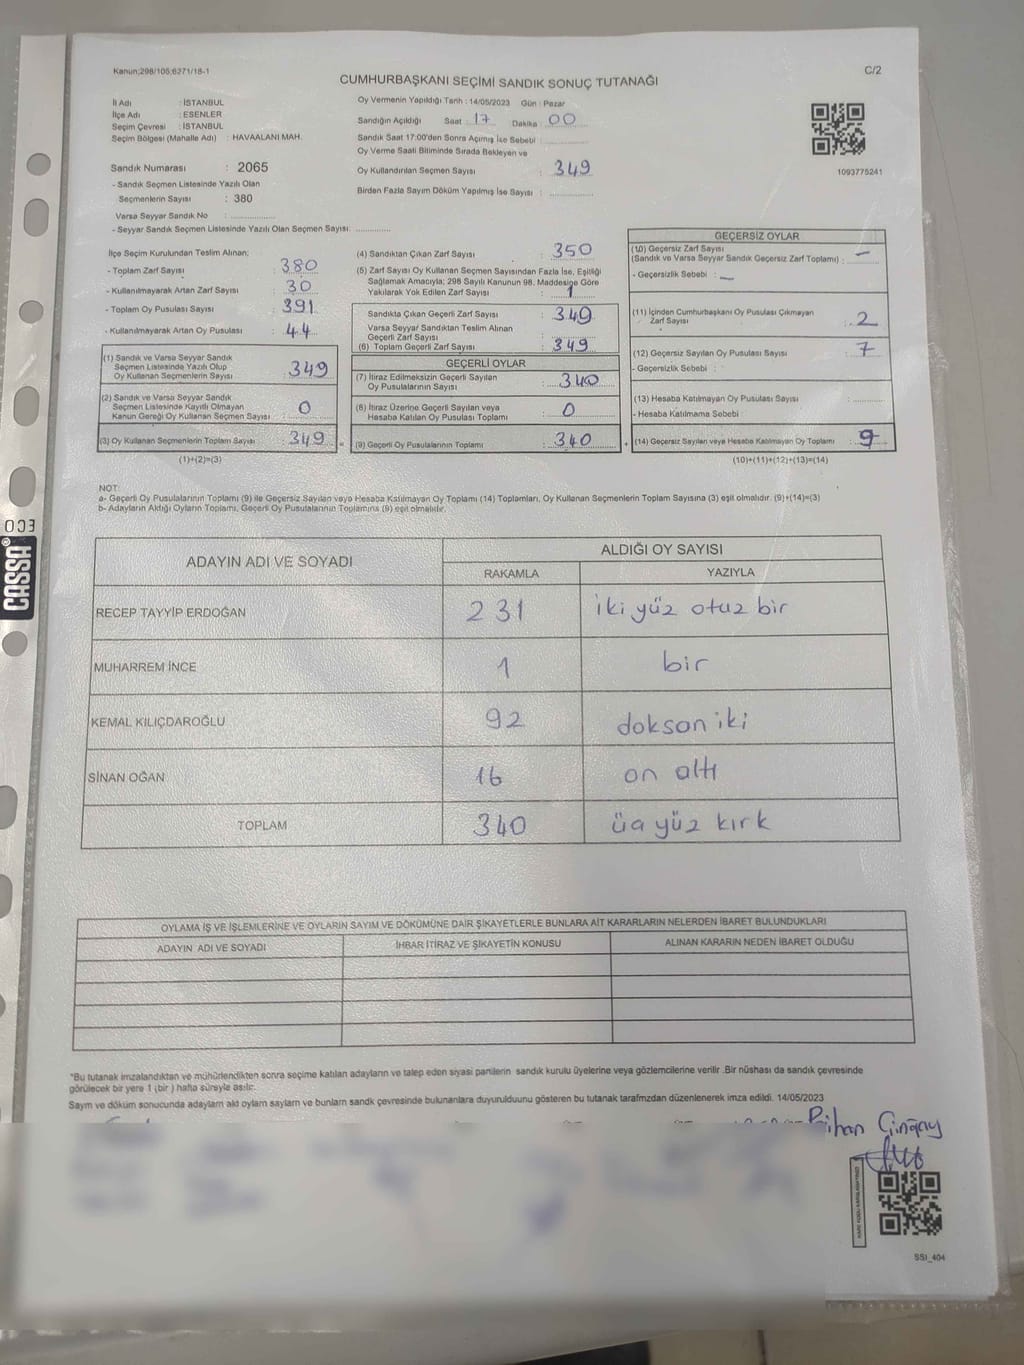 Kanun;298/105;6271/18-1
C/2
CUMHURBAŞKANI SEÇİMİ SANDIK SONUÇ TUTANAĞI
İl Adı : İSTANBUL
İlçe Adı : ESENLER
Seçim Çevresi : İSTANBUL
Seçim Bölgesi (Mahalle Adı) : HAVAALANI MAH.
Sandık Numarası : 2065
- Sandık Seçmen Listesinde Yazılı Olan
Seçmenlerin Sayısı : 380
Varsa Seyyar Sandık No : ..............
- Seyyar Sandık Seçmen Listesinde Yazılı Olan Seçmen Sayısı: ..............
Oy Vermenin Yapıldığı Tarih : 14/05/2023 Gün : Pazar
Sandığın Açıldığı Saat : 17 Dakika : 00
Sandık Saat 17:00'den Sonra Açımış İse Sebebi : ..............
Oy Verme Saati Bitiminde Sırada Bekleyen ve
Oy Kullandırılan Seçmen Sayısı : 349
Birden Fazla Sayım Döküm Yapılmış İse Sayısı : ..............
1093775241
İlçe Seçim Kurulundan Teslim Alınan;
- Toplam Zarf Sayısı : 380
- Kullanılmayarak Artan Zarf Sayısı : 30
- Toplam Oy Pusulası Sayısı : 391
- Kullanılmayarak Artan Oy Pusulası : 44
(1) Sandık ve Varsa Seyyar Sandık
Seçmen Listesinde Yazılı Olup
Oy Kullanan Seçmenlerin Sayısı : 349
(2) Sandık ve Varsa Seyyar Sandık
Seçmen Listesinde Kayıtlı Olmayan
Kanun Gereği Oy Kullanan Seçmen Sayısı : 0
(3) Oy Kullanan Seçmenlerin Toplam Sayısı : 349
(1)+(2)=(3)
(4) Sandıktan Çıkan Zarf Sayısı : 350
(5) Zarf Sayısı Oy Kullanan Seçmen Sayısından Fazla İse, Eşitliği
Sağlamak Amacıyla; 298 Sayılı Kanunun 98. Maddesine Göre
Yakılarak Yok Edilen Zarf Sayısı : 1
Sandıkta Çıkan Geçerli Zarf Sayısı : 349
Varsa Seyyar Sandıktan Teslim Alınan
Geçerli Zarf Sayısı
(6) Toplam Geçerli Zarf Sayısı : 349
GEÇERLİ OYLAR
(7) İtiraz Edilmeksizin Geçerli Sayılan
Oy Pusulalarının Sayısı : 340
(8) İtiraz Üzerine Geçerli Sayılan veya
Hesaba Katılan Oy Pusulası Toplamı : 0
= (9) Geçerli Oy Pusulalarının Toplamı : 340
GEÇERSİZ OYLAR
(10) Geçersiz Zarf Sayısı
(Sandık ve Varsa Seyyar Sandık Geçersiz Zarf Toplamı) : —
- Geçersizlik Sebebi : —
(11) İçinden Cumhurbaşkanı Oy Pusulası Çıkmayan
Zarf Sayısı : 2
(12) Geçersiz Sayılan Oy Pusulası Sayısı : 7
- Geçersizlik Sebebi :
(13) Hesaba Katılmayan Oy Pusulası Sayısı : ..............
- Hesaba Katılmama Sebebi
+ (14) Geçersiz Sayılan veya Hesaba Katılmayan Oy Toplamı : 9
(10)+(11)+(12)+(13)=(14)
NOT:
a- Geçerli Oy Pusulalarının Toplamı (9) ile Geçersiz Sayılan veya Hesaba Katılmayan Oy Toplamı (14) Toplamları, Oy Kullanan Seçmenlerin Toplam Sayısına (3) eşit olmalıdır. (9)+(14)=(3)
b- Adayların Aldığı Oyların Toplamı, Geçerli Oy Pusulalarının Toplamına (9) eşit olmalıdır.
ADAYIN ADI VE SOYADI
ALDIĞI OY SAYISI
RAKAMLA YAZIYLA
RECEP TAYYİP ERDOĞAN 231 iki yüz otuz bir
MUHARREM İNCE 1 bir
KEMAL KILIÇDAROĞLU 92 doksan iki
SİNAN OĞAN 16 on altı
TOPLAM 340 üç yüz kırk
OYLAMA İŞ VE İŞLEMLERİNE VE OYLARIN SAYIM VE DÖKÜMÜNE DAİR ŞİKAYETLERLE BUNLARA AİT KARARLARIN NELERDEN İBARET BULUNDUKLARI
ADAYIN ADI VE SOYADI İHBAR İTİRAZ VE ŞİKAYETİN KONUSU ALINAN KARARIN NEDEN İBARET OLDUĞU
*Bu tutanak imzalandıktan ve mühürlendikten sonra seçime katılan adayların ve talep eden siyasi partilerin sandık kurulu üyelerine veya gözlemcilerine verilir .Bir nüshası da sandık çevresinde
görülecek bir yere 1 (bir ) hafta süreyle asılır.
Sayım ve döküm sonucunda adayların aldı oyların sayları ve bunların sandk çevresinde bulunanlara duyurulduunu gösteren bu tutanak tarafmzdan düzenlenerek imza edildi. 14/05/2023
SSI_404
CASSA
ECO